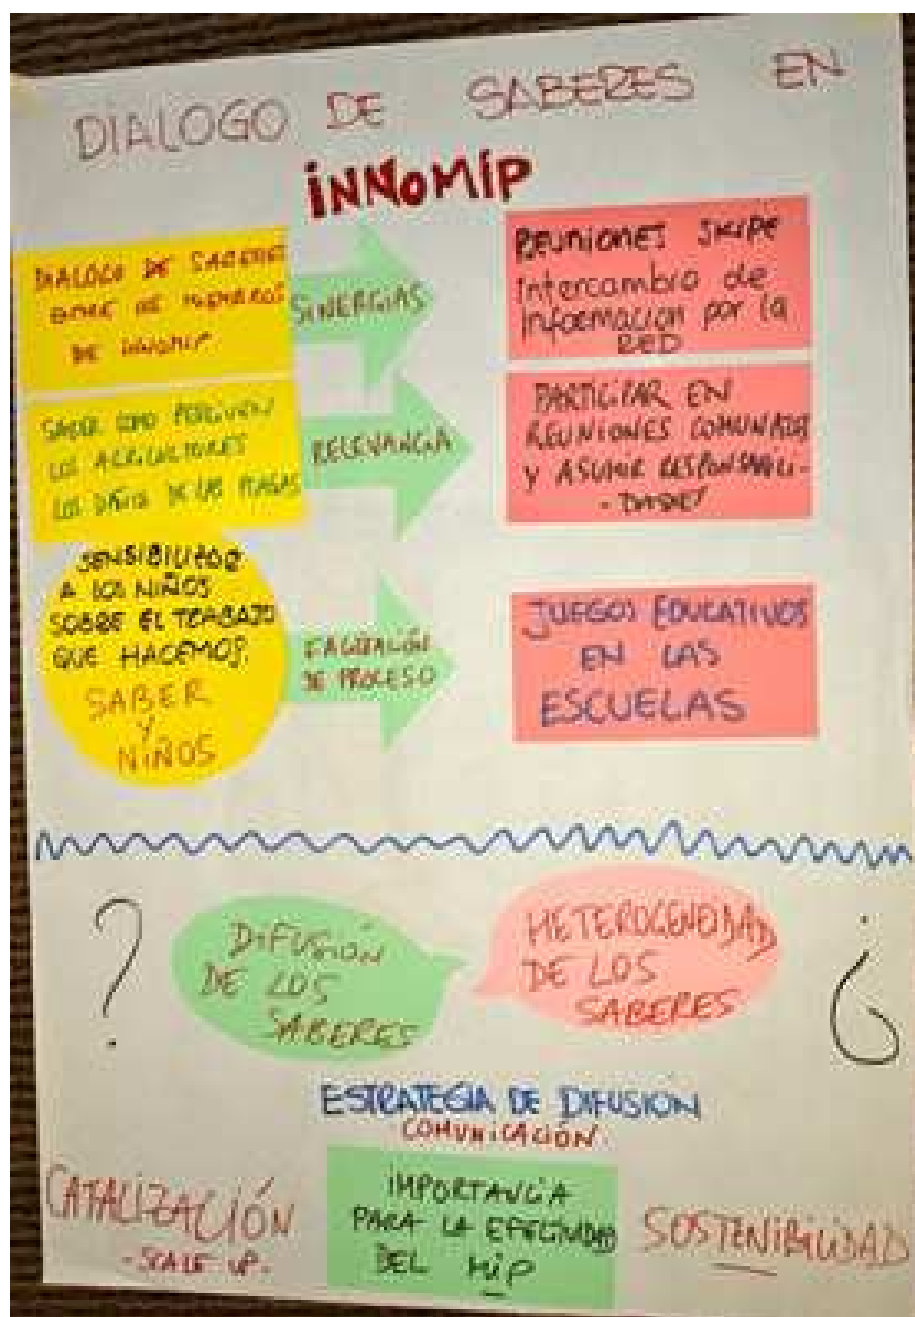 DIALOGO DE SABERES EN
INNOMIP
DIALOGO DE SABERES
ENTRE DE MIEMBROS
DE INNOMIP
SINERGIAS
REUNIONES SKIPE
Intercambio de
Informacion por la
RED
SABER COMO PERCIVEN
LOS AGRICULTORES
LOS DAÑOS DE LAS PLAGAS
RELEVANCIA
PARTICIPAR EN
REUNIONES COMUNALES
Y ASUMIR RESPONSABILI-
-DADES
SENSIBILIZAR
A LOS NIÑOS
SOBRE EL TRABAJO
QUE HACEMOS
SABER
Y
NIÑOS
DE PROCESO
JUEGOS EDUCATIVOS
EN LAS
ESCUELAS
?
DIFUSIÓN
DE LOS
SABERES
HETEROGENEIDAD
DE LOS
SABERES
¿
ESTRATEGIA DE DIFUSION
COMUNICACIÓN
CATALIZACIÓN
-SCALE UP-
IMPORTANCIA
PARA LA EFECTIVIDAD
DEL MIP
SOSTENIBILIDAD